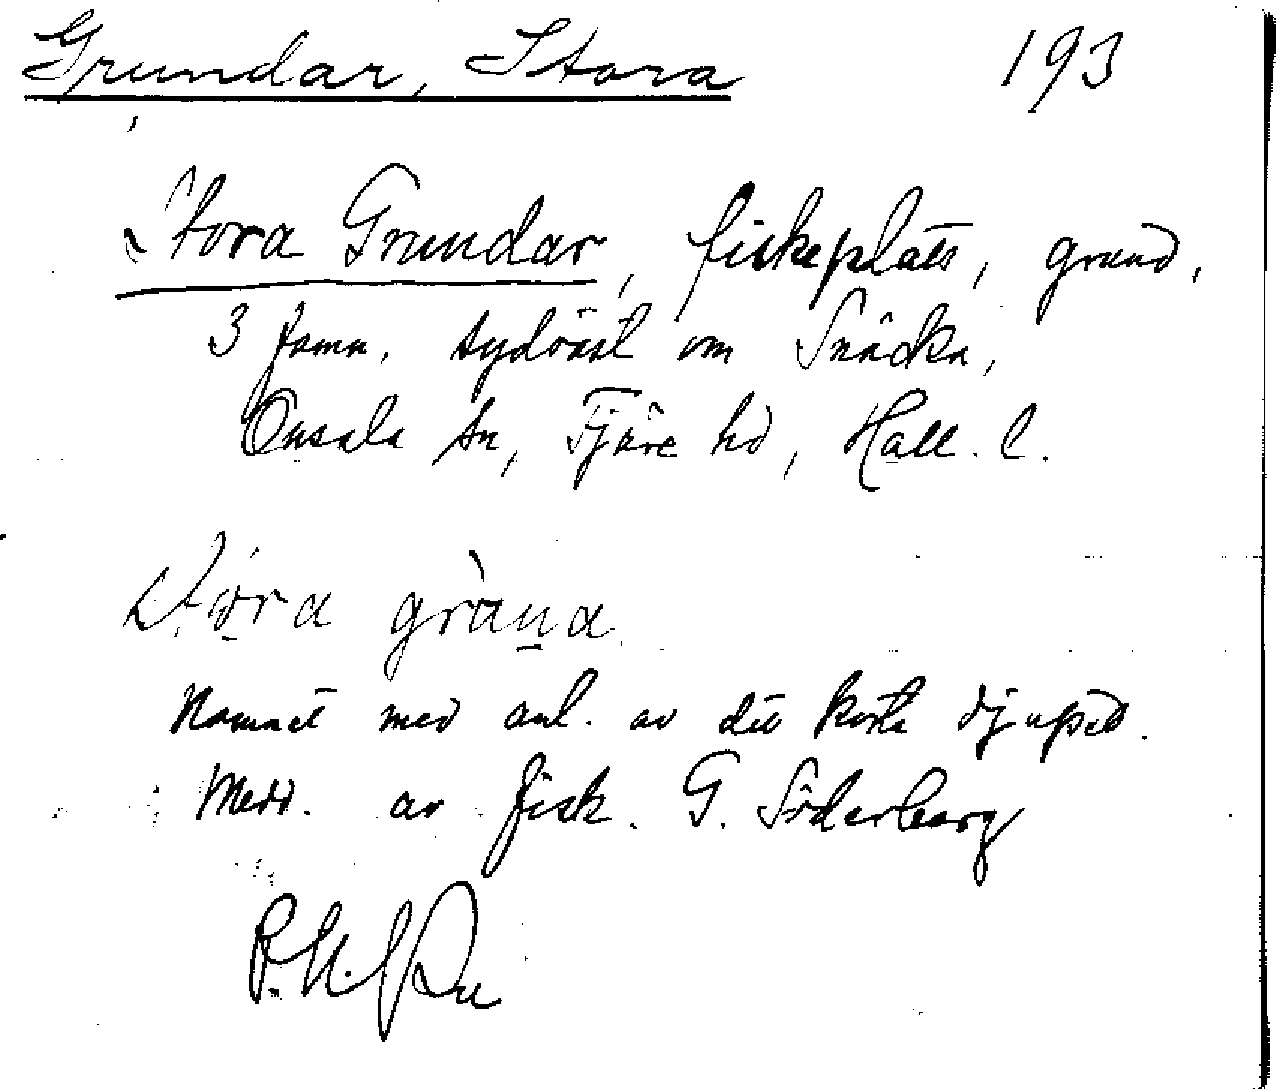 Grundar, Stora 193
Stora Grundar, fiskeplats, grund,
3 famn. sydöst om Snäcka,
Onsala sn, Fjäre hd, Hall. l.
Stora gruna
Namnet med anl. av det korta djupet.
Medd. av fisk. G. Söderberg